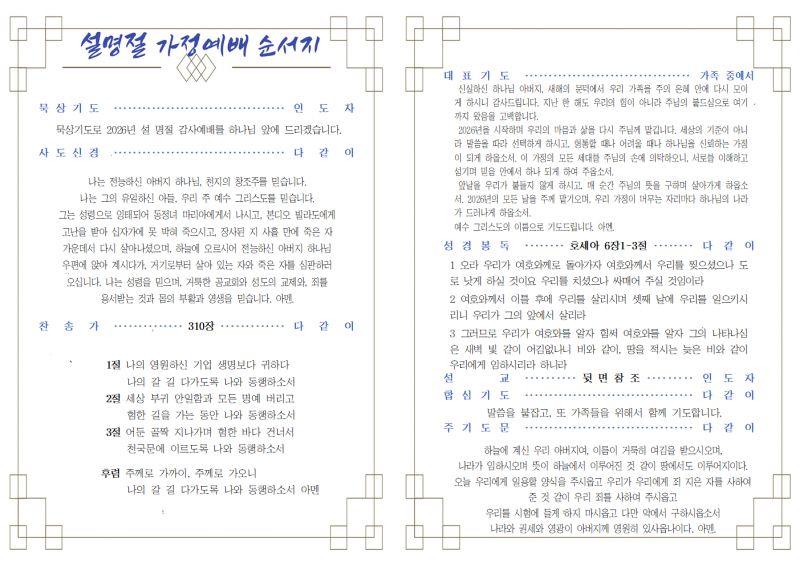 설명절 가정예배 순서지
묵 상 기 도 ································ 인 도 자
묵상기도로 2026년 설 명절 감사예배를 하나님 앞에 드리겠습니다.
사 도 신 경 ································ 다 같 이
나는 전능하신 아버지 하나님, 천지의 창조주를 믿습니다.
나는 그의 유일하신 아들, 우리 주 예수 그리스도를 믿습니다.
그는 성령으로 잉태되어 동정녀 마리아에게서 나시고, 본디오 빌라도에게
고난을 받아 십자가에 못 박혀 죽으시고, 장사된 지 사흘 만에 죽은 자
가운데서 다시 살아나셨으며, 하늘에 오르시어 전능하신 아버지 하나님
우편에 앉아 계시다가, 거기로부터 살아 있는 자와 죽은 자를 심판하러
오십니다. 나는 성령을 믿으며, 거룩한 공교회와 성도의 교제와, 죄를
용서받는 것과 몸의 부활과 영생을 믿습니다. 아멘.
찬 송 가 ············· 310장 ············· 다 같 이
1절 나의 영원하신 기업 생명보다 귀하다
나의 갈 길 다가도록 나와 동행하소서
2절 세상 부귀 안일함과 모든 명예 버리고
험한 길을 가는 동안 나와 동행하소서
3절 어둔 골짝 지나가며 험한 바다 건너서
천국문에 이르도록 나와 동행하소서
후렴 주께로 가까이, 주께로 가오니
나의 갈 길 다가도록 나와 동행하소서 아멘
대 표 기 도 ································ 가족 중에서
신실하신 하나님 아버지, 새해의 문턱에서 우리 가족을 주의 은혜 안에 다시 모이
게 하시니 감사드립니다. 지난 한 해도 우리의 힘이 아니라 주님의 붙드심으로 여기
까지 왔음을 고백합니다.
2026년을 시작하며 우리의 마음과 삶을 다시 주님께 맡깁니다. 세상의 기준이 아니
라 말씀을 따라 선택하게 하시고, 형통할 때나 어려울 때나 하나님을 신뢰하는 가정
이 되게 하옵소서. 이 가정의 모든 세대를 주님의 손에 의탁하오니, 서로를 이해하고
섬기며 믿음 안에서 하나 되게 하여 주옵소서.
앞날을 우리가 붙들지 않게 하시고, 매 순간 주님의 뜻을 구하며 살아가게 하옵소
서. 2026년의 모든 날을 주께 맡기오며, 우리 가정이 머무는 자리마다 하나님의 나라
가 드러나게 하옵소서.
예수 그리스도의 이름으로 기도드립니다. 아멘.
성 경 봉 독 ·········· 호세아 6장1-3절 ·········· 다 같 이
1 오라 우리가 여호와께로 돌아가자 여호와께서 우리를 찢으셨으나 도
로 낫게 하실 것이요 우리를 치셨으나 싸매어 주실 것임이라
2 여호와께서 이틀 후에 우리를 살리시며 셋째 날에 우리를 일으키시
리니 우리가 그의 앞에서 살리라
3 그러므로 우리가 여호와를 알자 힘써 여호와를 알자 그의 나타나심
은 새벽 빛 같이 어김없나니 비와 같이, 땅을 적시는 늦은 비와 같이
우리에게 임하시리라 하니라
설 교 ·········· 뒷 면 참 조 ········· 인 도 자
합 심 기 도 ································ 다 같 이
말씀을 붙잡고, 또 가족들을 위해서 함께 기도합니다.
주 기 도 문 ································ 다 같 이
하늘에 계신 우리 아버지여, 이름이 거룩히 여김을 받으시오며,
나라가 임하시오며 뜻이 하늘에서 이루어진 것 같이 땅에서도 이루어지이다.
오늘 우리에게 일용할 양식을 주시옵고 우리가 우리에게 죄 지은 자를 사하여
준 것 같이 우리 죄를 사하여 주시옵고
우리를 시험에 들게 하지 마시옵고 다만 악에서 구하시옵소서
나라와 권세와 영광이 아버지께 영원히 있사옵나이다. 아멘.